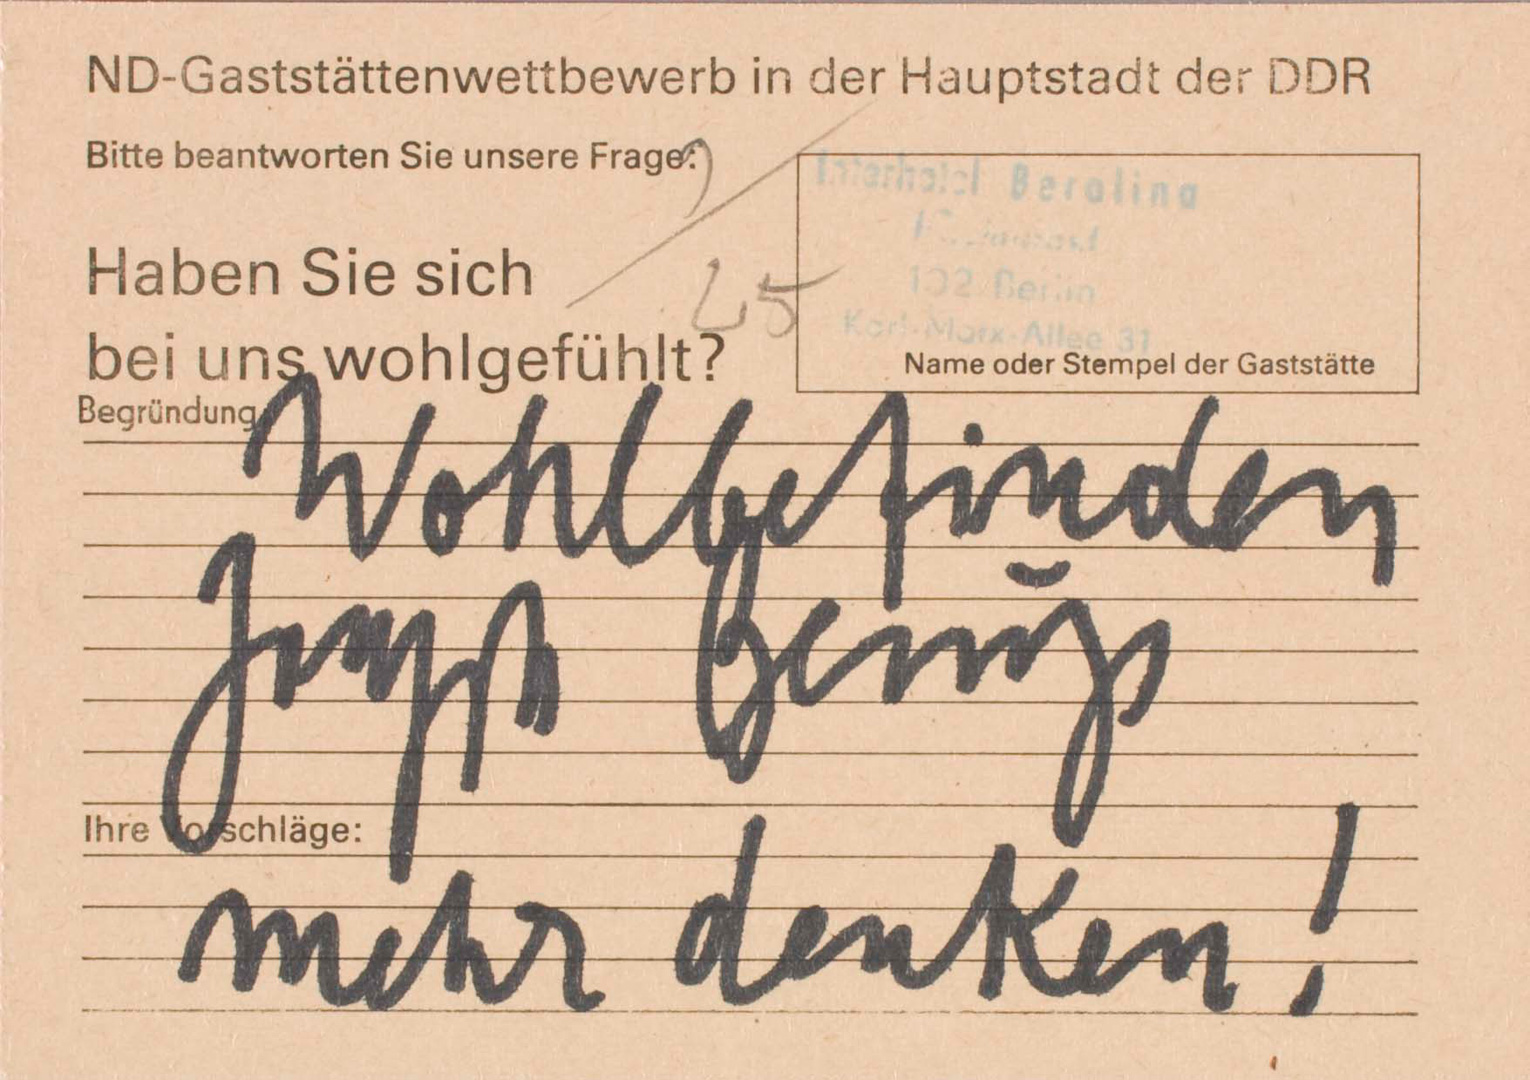 ND-Gaststättenwettbewerb in der Hauptstadt der DDR
Bitte beantworten Sie unsere Frage:
Haben Sie sich
bei uns wohlgefühlt?
25
Interhotel Berolina
102 Berlin
Karl-Marx-Allee 31
Name oder Stempel der Gaststätte
Begründung
Wohlbefinden
genug
Ihre Vorschläge:
mehr denken!